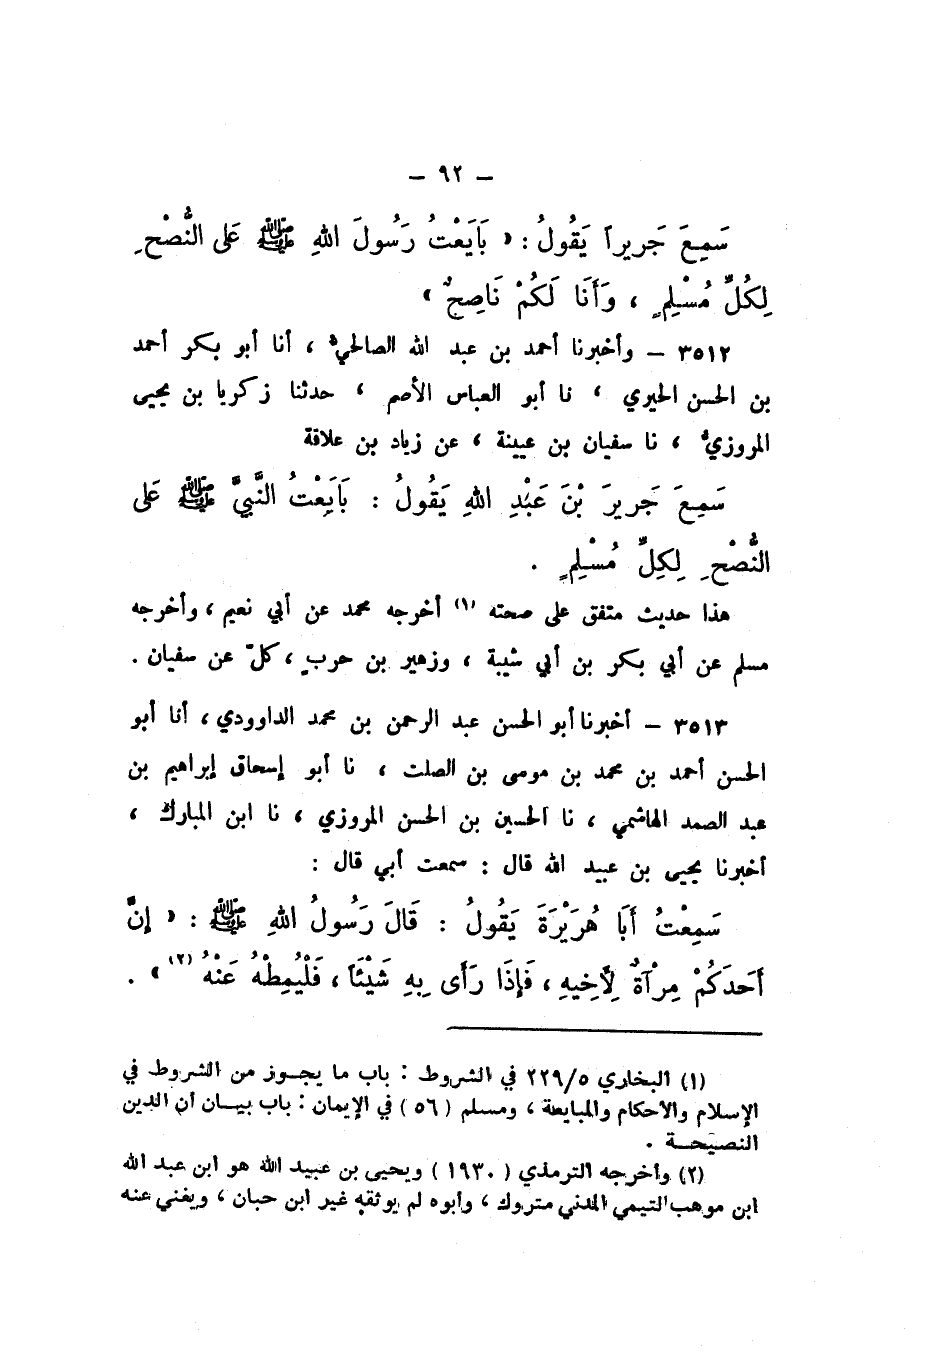 - ٩٢ -
سَمِعَ جَريراً يَقُولُ : « بَايَعْتُ رَسُولَ اللهِ ﷺ عَلى النُّصْحِ
لِكُلِّ مُسْلِمٍ ، وَأَنَا لَكُمْ نَاصِحٌ »
٣٥١٢ - وأخبرنا أحمد بن عبد الله الصالحيُّ ، أنا أبو بكر أحمد
بن الحسن الحيري ، نا أبو العباس الأصم ، حدثنا زكريا بن يحيى
المروزيُّ ، نا سفيان بن عيينة ، عن زياد بن علاقة
سَمِعَ جَريرَ بْنَ عَبْدِ اللهِ يَقُولُ : بَايَعْتُ النَّبِيَّ ﷺ عَلى
النُّصْحِ لِكلِّ مُسْلِمٍ .
هذا حديث متفق على صحته (١) أخرجه محمد عن أبي نعيم ، وأخرجه
مسلم عن أبي بكر بن أبي شيبة ، وزهير بن حربٍ ، كلٌّ عن سفيان .
٣٥١٣ - أخبرنا أبو الحسن عبد الرحمن بن محمد الداوودي ، أنا أبو
الحسن أحمد بن محمد بن موسى بن الصلت ، نا أبو إسحاق إبراهيم بن
عبد الصمد الهاشمي ، نا الحسين بن الحسن المروزي ، نا ابن المبارك ،
أخبرنا يحيى بن عبيد الله قال : سمعت أبي قال :
سَمِعْتُ أَبَا هُرَيْرَةَ يَقُولُ : قَالَ رَسُولُ اللهِ ﷺ : « إنَّ
أَحَدَكُمْ مِرْآةُ لِأَخِيهِ ، فَإِذَا رَأَى بِهِ شَيْئاً ، فَلْيُمِطْهُ عَنْهُ (٢) » .
(١) البخاري ٢٢٩/٥ في الشروط : باب ما يجوز من الشروط في
الإسلام والأحكام والمبايعة ، ومسلم ( ٥٦ ) في الإيمان : باب بيان أن الدين
النصيحة .
(٢) وأخرجه الترمذي ( ١٩٣٠ ) ويحيى بن عبيد الله هو ابن عبد الله
ابن موهب التيمي المدني متروك ، وأبوه لم يوثقه غير ابن حبان ، ويغني عنه